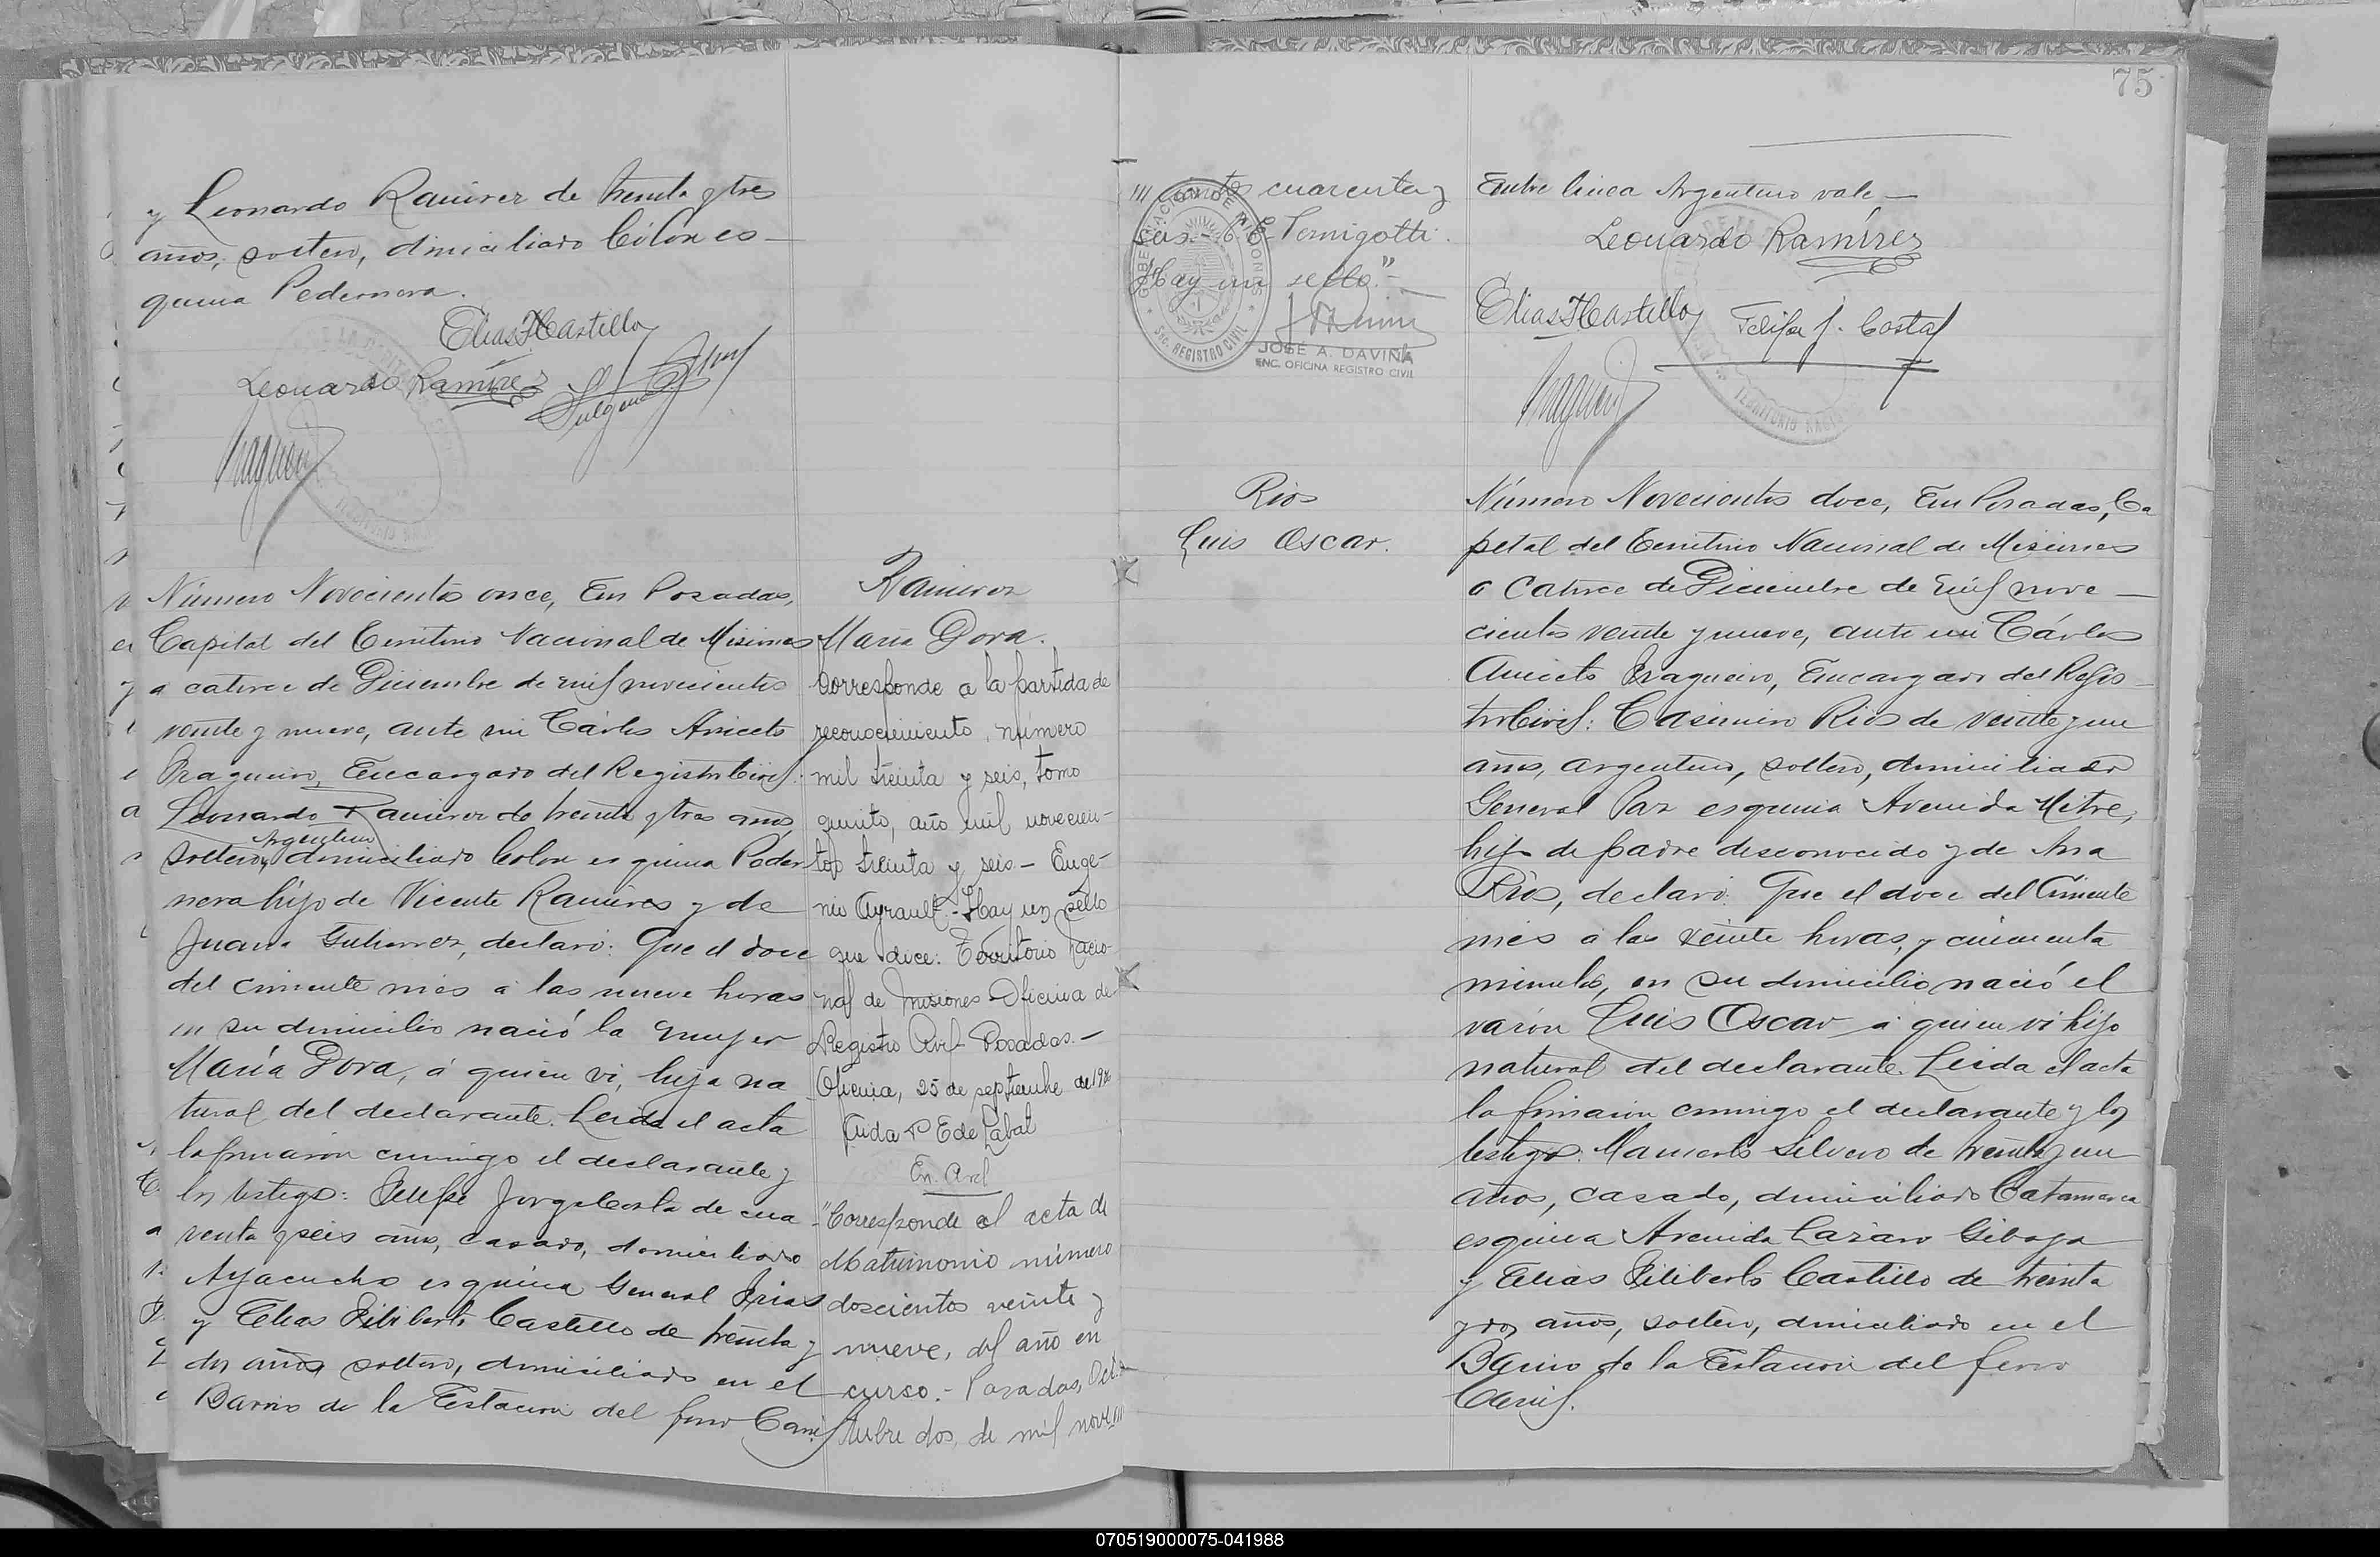 y Leonardo Ramirez de treinta y tres
años, soltero, dimiciliado Colón es-
quina Pedernera.
Elias F Castillo
Leonardo Ramírez
Número Novecientos once, En Posadas,
Capital del Territorio Nacional de Misiones
a catorce de Diciembre de mil novecientos
veinte y nueve, ante mi Cárlos Aniceto
Fragueiro, Encargado del Registro Civil:
Leonardo Ramirez de treinta y tres años,
Argentino
soltero, domiciliado Colon esquina Peder
nera hijo de Vicente Ramires y de
Juana Gutierrez, declaró: Que el doce
del corriente mes á las nueve horas
en su domicilio nació la mujer
María Dora, á quien vi, hija na
tural del declarante. Leida el acta
la firmaron conmigo el declarante y
los testigos: Felipe Jorge Costa de cua
renta y seis años, casado, domiciliado
Ayacucho esquina General Frias
y Elias Filiberto Castillo de treinta y
dos años soltero, domiciliado en el
Barrio de la Estacion del ferro Carril
Ramirez
María Dora.
Corresponde a la partida de
reconocimiento, número
mil treinta y seis, tomo
quinto, año mil novecien-
tos treinta y seis - Euge-
nio Ayrault - Hay un sello
que dice: Territorio Nacio
nal de Misiones - Oficina de
Registro Civil - Posadas. -
Oficina, 25 de septiembre de 1936
Aida P E de Labat
En. Arcl
"Corresponde al acta de
Matrimonio número
doscientos veinte y
nueve, del año en
curso. - Posadas, Oct.
tubre dos, de mil nove
75
cientos cuarenta y
seis. - Tornigotti.
Hay un sello." -
GOBERNACION DE MISIONES
SEC. REGISTRO CIVIL
JOSÉ A. DAVIÑA
ENC. OFICINA REGISTRO CIVIL
Rios
Luis Oscar.
Entre linea Argentino vale -
Leonardo Ramírez
Elias F Castillo
Felipe J. Costa
TERRITORIO NACI
Número Novecientos doce, En Posadas, Ca
petal del Territorio Nacional de Misiones
a Catorce de Diciembre de mil nove -
cientos veinte y nueve, ante mi Cárlos
Aniceto Fragueiro, Encargado del Regis-
tro Civil: Casimiro Rios de veinte y un
años, argentino, soltero, domiciliado
General Paz esquina Avenida Mitre,
hijo de padre desconocido y de Ana
Rios, declaró: Que el doce del Corriente
mes á las veinte horas, y cincuenta
minutos, en su domicilio nació el
varón Luis Oscar á quien vi hijo
natural del declarante. Leida el acta
la firmaron conmigo el declarante y los
testigos: Mamerto Silvero de treinta y un
años, casado, domiciliado Catamarca
esquina Avenida Lazaro Gibaja
y Elias Filiberto Castillo de treinta
y dos años, soltero, dimiciliado en el
Barrio de la Estacion del ferro
Carril.
070519000075-041988